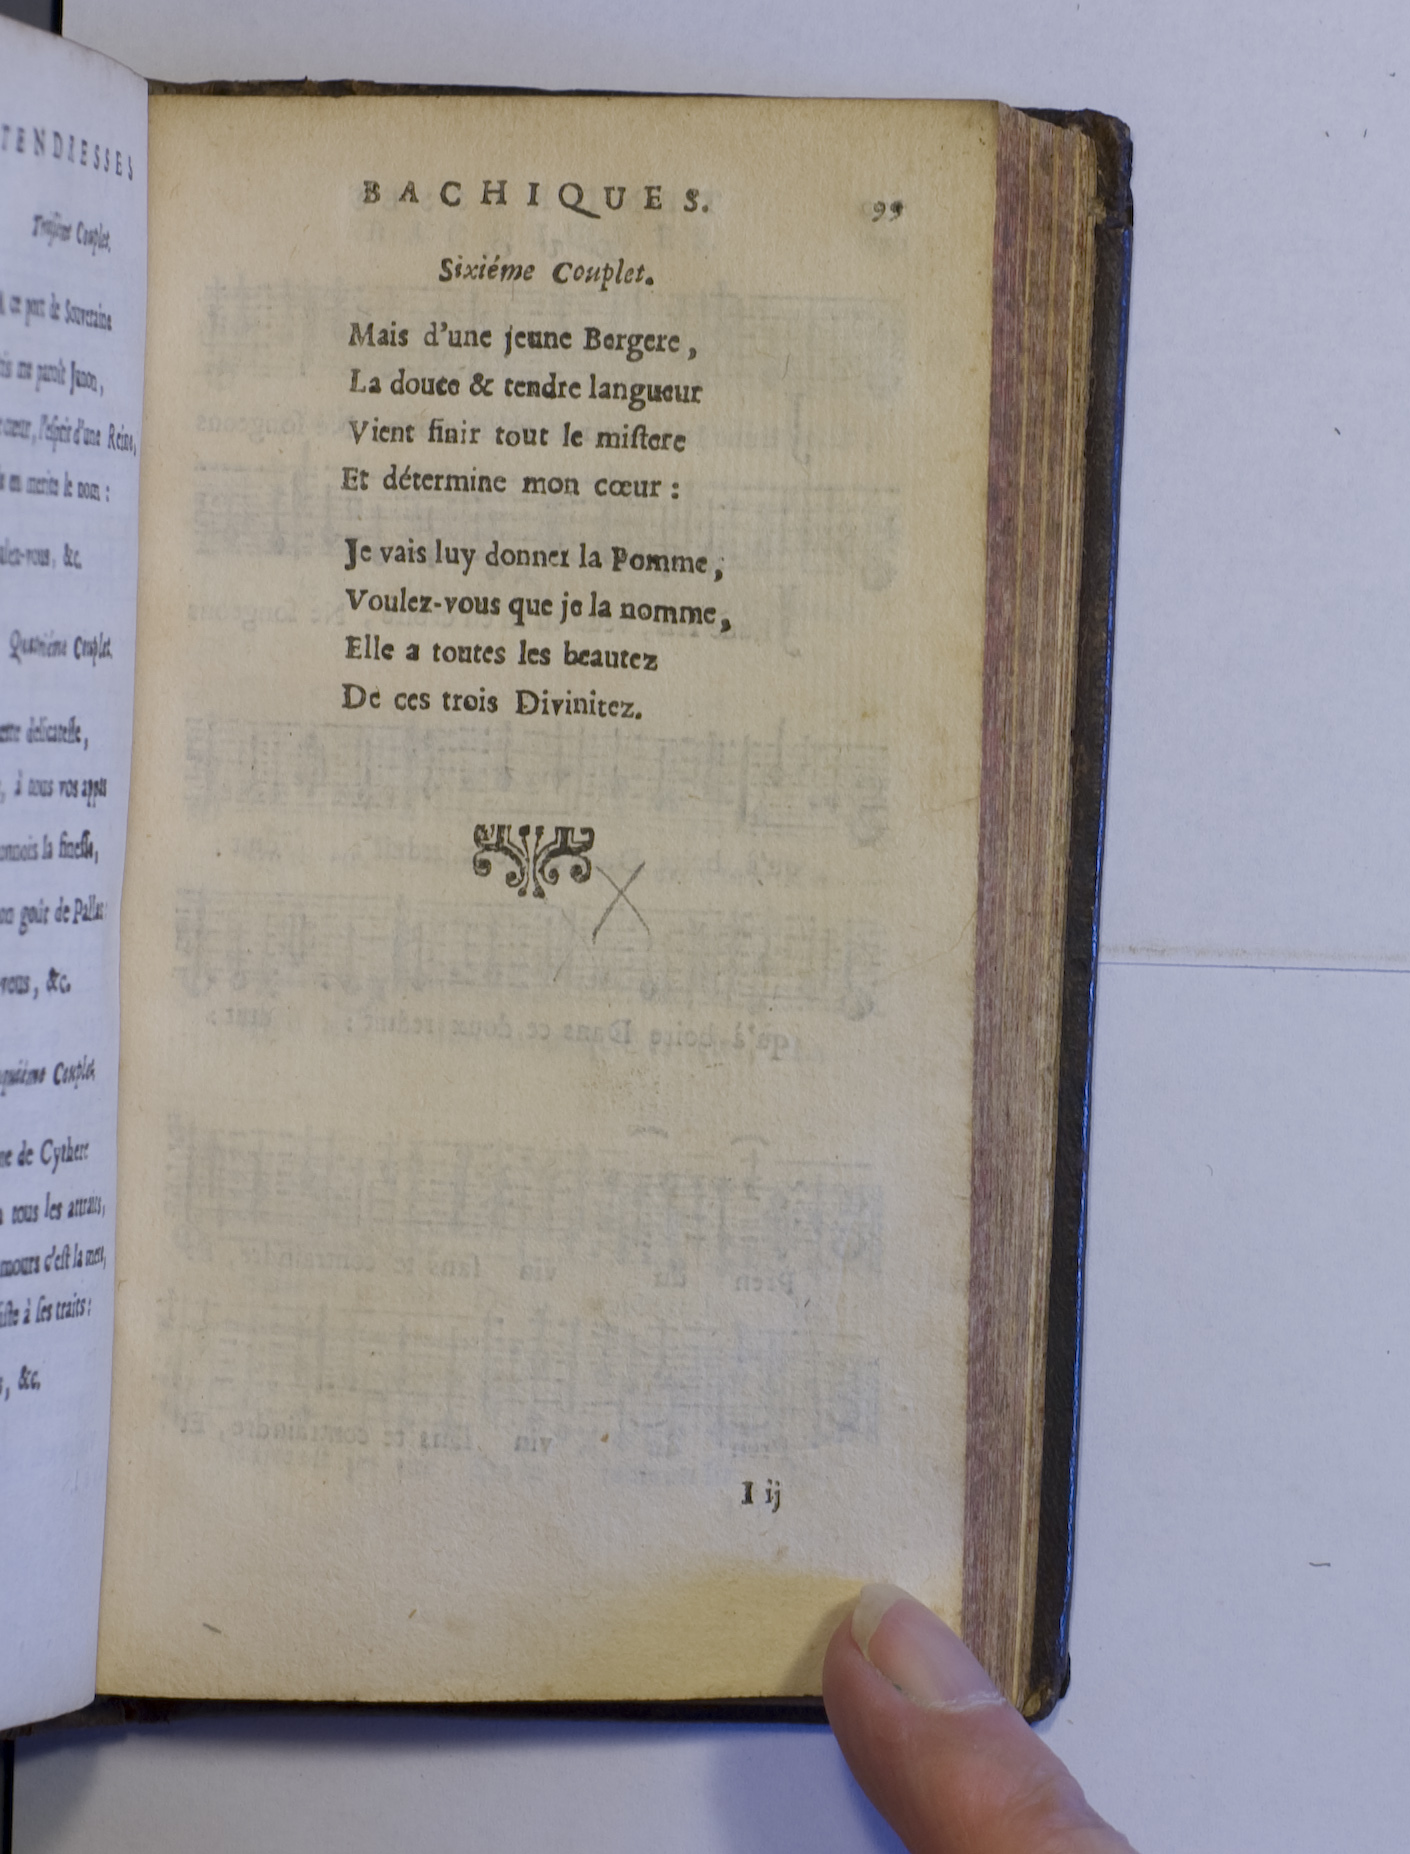 TENDRESSES
Troisiéme Couplet.
ce port de Souveraine
me paroît Junon,
cœur, l'esprit d'une Reine,
en merite le nom :
&c.
Quatriéme Couplet.
delicatesse,
à tous vos appas
la finesse,
goût de Pallas
&c.
Couplet.
de Cythere
tous les attraits,
c'est la mere,
à ses traits :
&c.
BACHIQUES. 99
Sixiéme Couplet.
Mais d'une jeune Bergere,
La douce & tendre langueur
Vient finir tout le miſtere
Et détermine mon cœur :
Je vais luy donner la Pomme,
Voulez-vous que je la nomme,
Elle a toutes les beautez
De ces trois Divinitez.
I ij